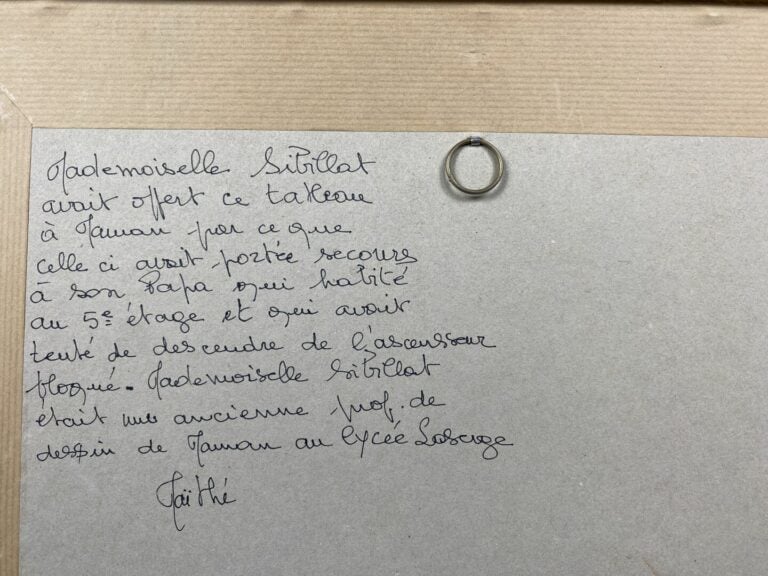 Mademoiselle Sibillat
avait offert ce tableau
à Maman par ce que
celle ci avait portée secours
à son Papa qui habité
au 5e étage et qui avait
tenté de descendre de l'ascenseur
bloqué. Mademoiselle Sibillat
était une ancienne prof. de
dessin de Maman au lycée
Maïthé